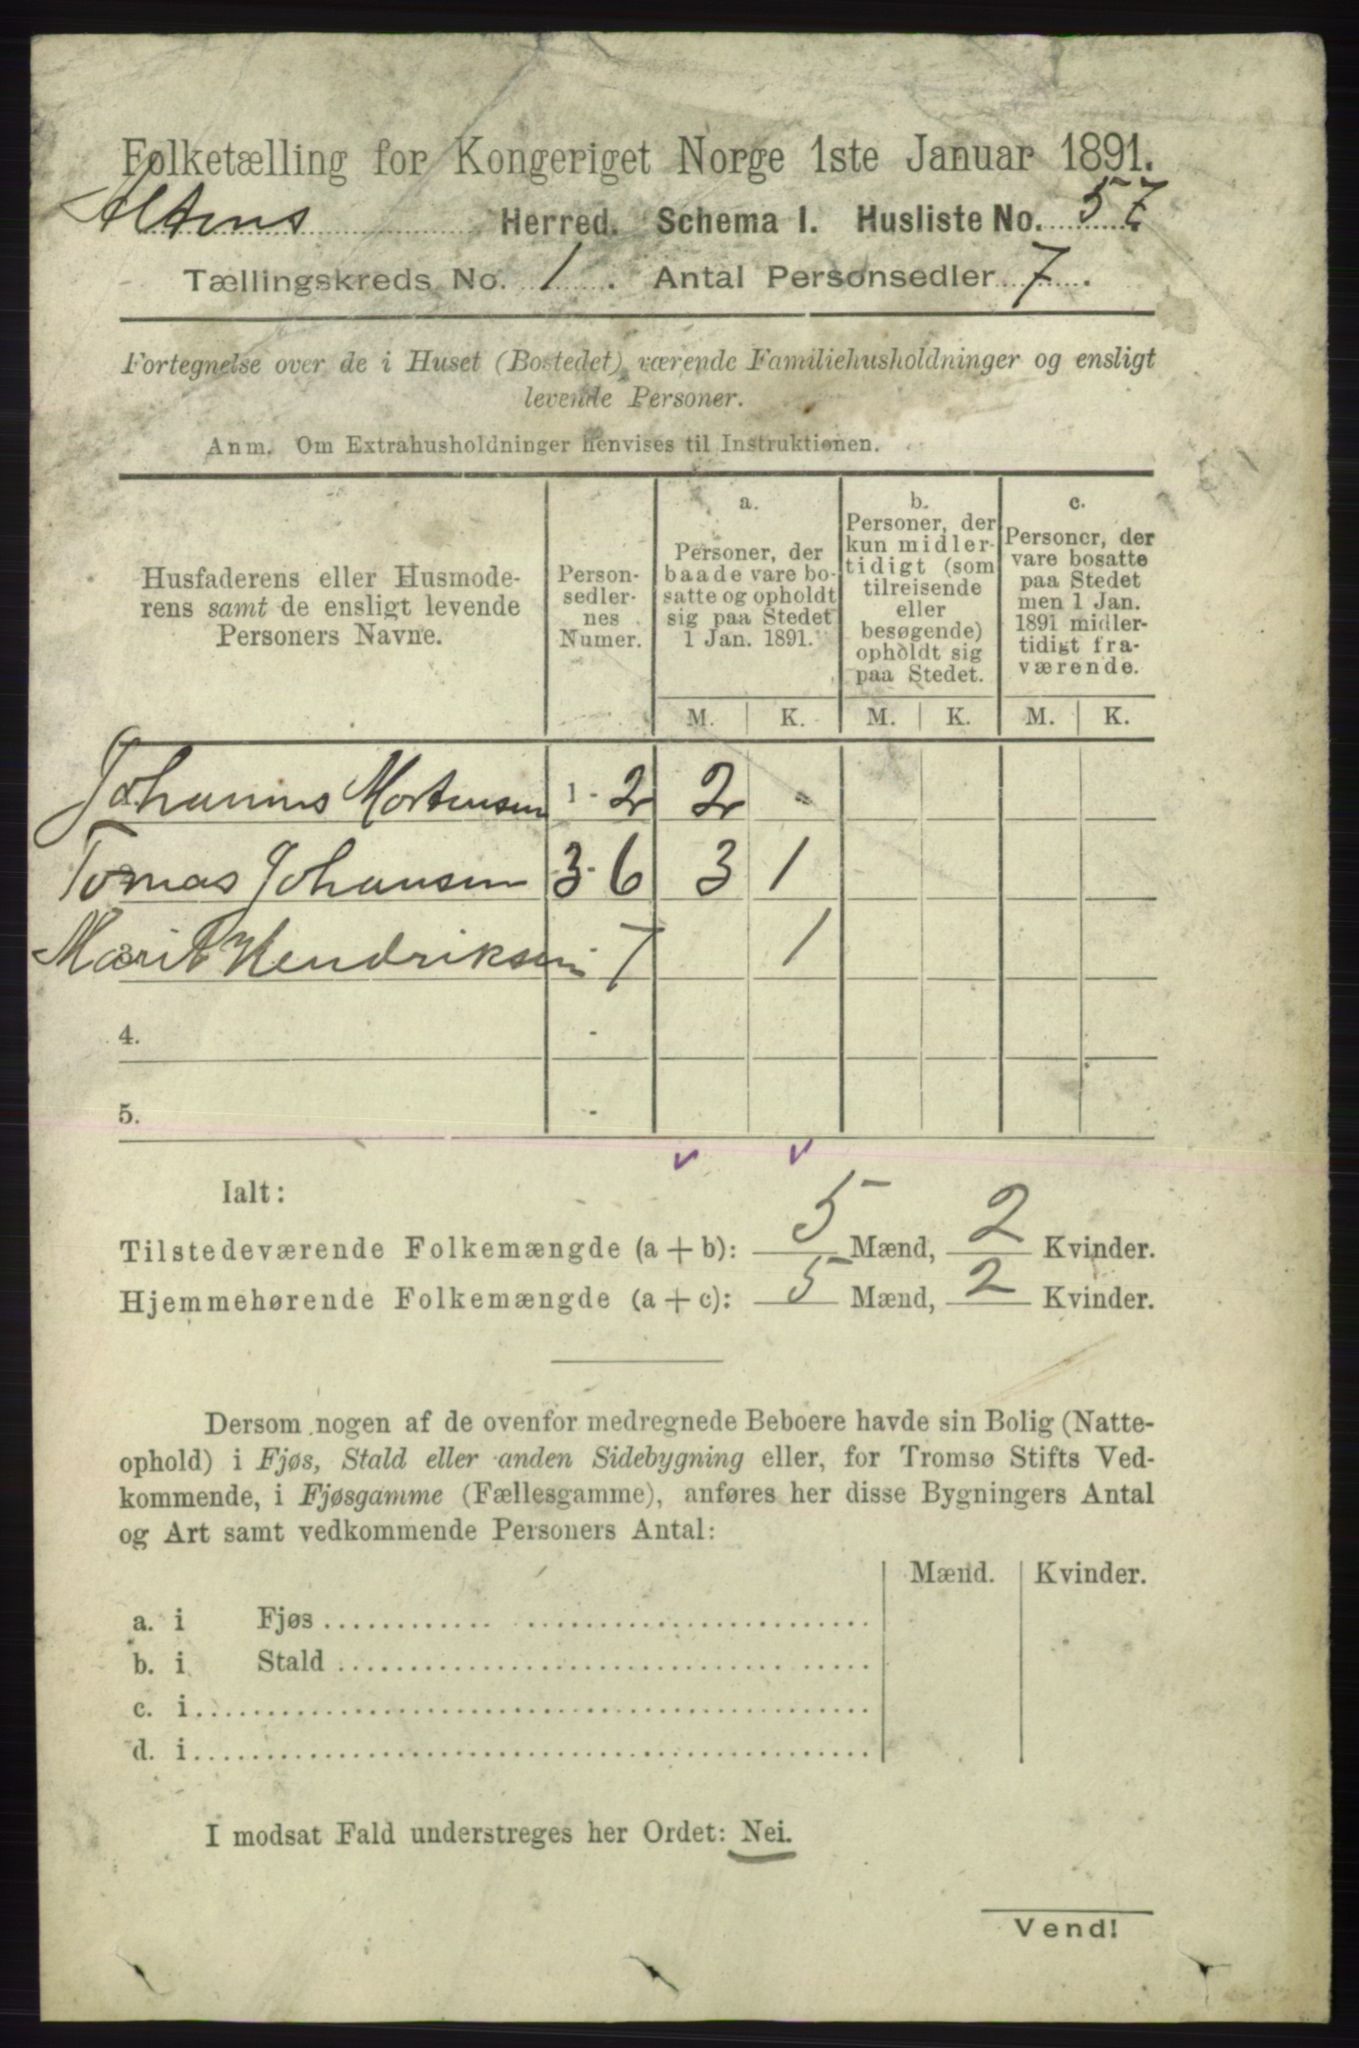 Folketælling for Kongeriget Norge 1ste Januar 1891.
Altens Herred. Schema I. Husliste No. 57.
Tællingskreds No. 1. Antal Personsedler 7.
Fortegnelse over de i Huset (Bostedet) værende Familiehusholdninger og ensligt
levende Personer.
Anm. Om Extrahusholdninger henvises til Instruktionen.
Husfaderens eller Husmode-
rens samt de ensligt levende
Personers Navne.
Person-
sedler-
nes
Numer.
a.
Personer, der
baade vare bo-
satte og opholdt
sig paa Stedet
1 Jan. 1891.
b.
Personer, der
kun midler-
tidigt (som
tilreisende
eller
besøgende)
opholdt sig
paa Stedet.
c.
Personer, der
vare bosatte
paa Stedet
men 1 Jan.
1891 midler-
tidigt fra-
værende.
M. K. M. K. M. K.
Johannes Mortensen 1 - 2 2 -
Tomas Johansen 3 - 6 3 1
Marit Hendriksen - 7 1
4. -
5. -
Ialt:
Tilstedeværende Folkemængde (a + b): 5 Mænd, 2 Kvinder.
Hjemmehørende Folkemængde (a + c): 5 Mænd, 2 Kvinder.
Dersom nogen af de ovenfor medregnede Beboere havde sin Bolig (Natte-
ophold) i Fjøs, Stald eller anden Sidebygning eller, for Tromsø Stifts Ved-
kommende, i Fjøsgamme (Fællesgamme), anføres her disse Bygningers Antal
og Art samt vedkommende Personers Antal:
Mænd. Kvinder.
a. i Fjøs
b. i Stald
c. i
d. i
I modsat Fald understreges her Ordet: Nei.
Vend!